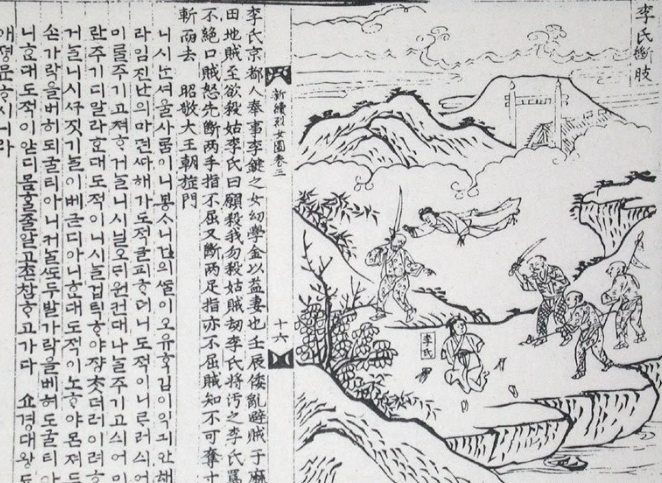 李氏斷肢
李氏
新續烈女圖卷三
十六
李氏京都人奉事李鍵之女幼學金以益妻也壬辰倭亂避賊于麻
田地賊至欲殺姑李氏曰願殺我勿殺姑賊刼李氏將汚之李氏罵
不絶口賊怒先斷兩手指不屈又斷兩足指亦不屈賊知不可奪寸
斬而去 昭敬大王朝旌門
니시ᄂᆞᆫ셔울사ᄅᆞᆷ이니봉ᄉᆞ니건의ᄯᆞᆯ이오유ᄒᆞᆨ김이익긔안해
라임진난의마면ᄯᅡ해가도적글피ᄒᆞ더니도적이니르러싀어
미를주기고져ᄒᆞ거ᄂᆞᆯ니시ᄀᆞᆯ오ᄃᆡ원컨대나ᄂᆞᆯ주기고싀어미
란주기디말라ᄒᆞᆫ대도적이니시ᄂᆞᆯ겁틱ᄒᆞ야쟝ᄎᆞᆺ더러이려ᄒᆞ
거ᄂᆞᆯ니시ᄭᅮ짓기ᄂᆞᆯ이베근티디아니ᄒᆞᆫ대도적이노ᄒᆞ야몬져두
손가락을버히되굴티아니커ᄂᆞᆯᄯᅩ두발가락을버혀도굴티아
니ᄒᆞᆫ대도적이앋디몯ᄒᆞᆯ줄알고촌참ᄒᆞ고가다 쇼경대왕됴
애졍문ᄒᆞ시니라